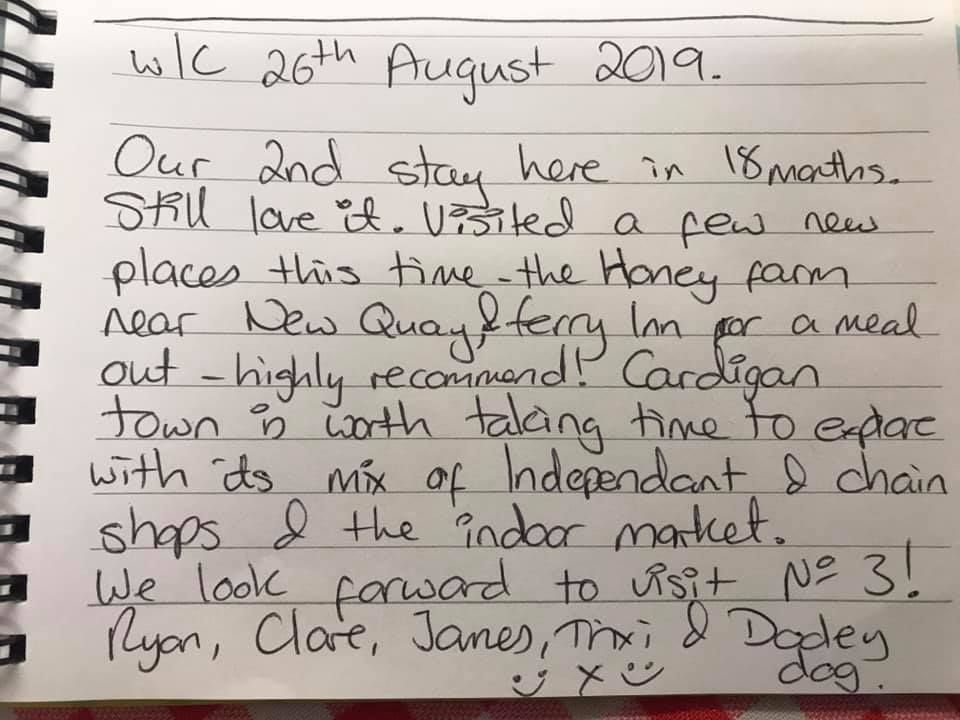 W/C 26th August 2019.
Our 2nd stay here in 18 months.
Still love it. Visited a few new
places this time - the Honey farm
near New Quay, & ferry Inn for a meal
out - highly recommend! Cardigan
town is worth taking time to explore
with its mix of Independant & chain
shops & the indoor market.
We look forward to visit Nº 3!
Ryan, Clare, James, Trixi & Dooley
dog.
☺ x ☺